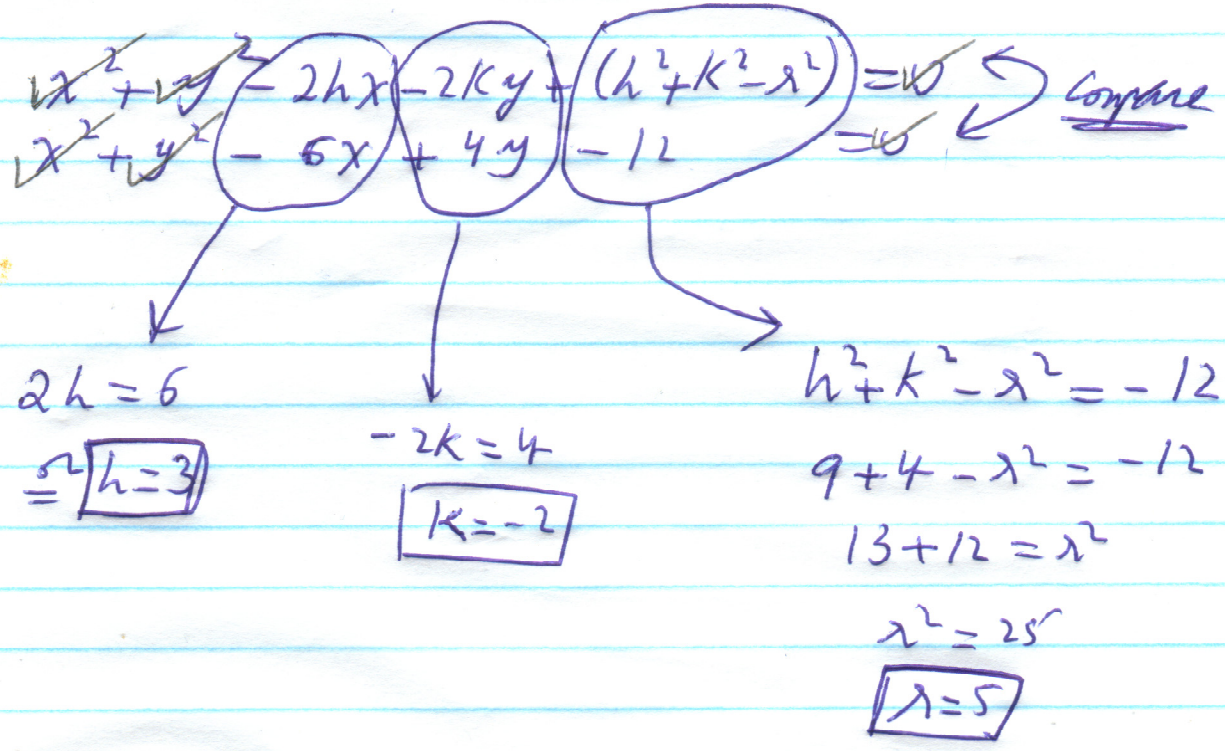 x² + y² - 2hx - 2ky + (h² + k² - r²) = 0
Compare
x² + y² - 6x + 4y - 12 = 0
2h = 6
h = 3
-2k = 4
k = -2
h² + k² - r² = -12
9 + 4 - r² = -12
13 + 12 = r²
r² = 25
r = 5